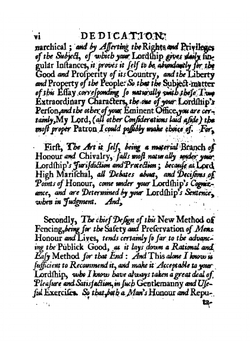 vi DEDICATION.
marchical; and by Asserting the Rights and Privileges
of the Subject, of which your Lordship gives daily sin-
gular Instances, it proves it self to be abundantly for the
Good and Prosperity of its Country, and the Liberty
and Property of the People: So that the Subject-matter
of this Essay corresponding so naturally with these Two
Extraordinary Characters, the one of your Lordship's
Person, and the other of your Eminent Office, you are cer-
tainly, My Lord, (all other Considerations laid aside) the
most proper Patron I could possibly make choice of. For,
First, The Art it self, being a material Branch of
Honour and Chivalry, falls most naturally under your
Lordship's Jurisdiction and Protection; because as Lord
High Marischal, all Debates about, and Decisions of
Points of Honour, come under your Lordship's Cogniz-
ance, and are Determined by your Lordship's Sentence,
when in Judgment. And,
Secondly, The chief Design of this New Method of
Fencing, being for the Safety and Preservation of Mens
Honour and Lives, tends certainly so far to the advanc-
ing the Publick Good, as it lays down a Rational and
Easy Method for that End: And This alone I know is
sufficient to Recommend it, and make it Acceptable to your
Lordship, who I know have always taken a great deal of
Pleasure and Satisfaction, in such Gentlemanny and Use-
ful Exercises. So that, as a Man's Honour and Repu-